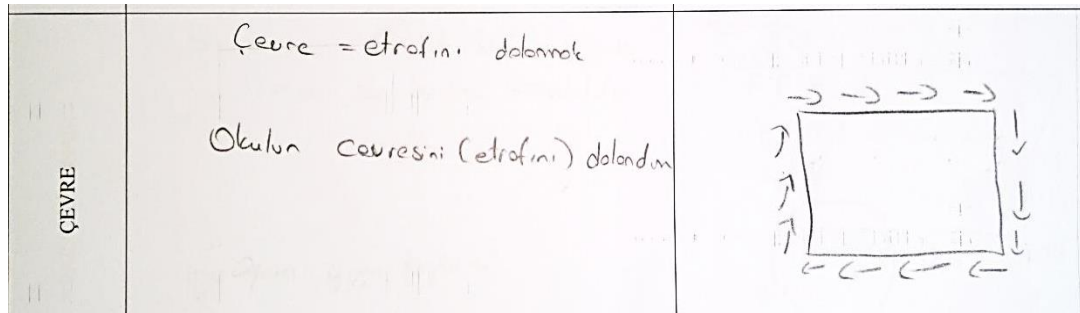 ÇEVRE
Çevre = etrafını dolanmak
Okulun çevresini (etrafını) dolandım